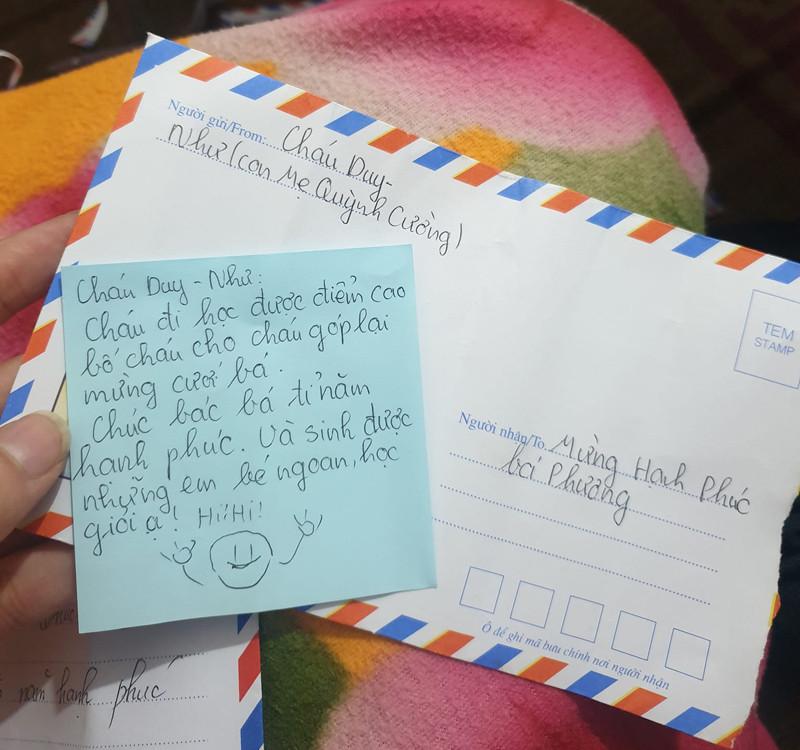 Người gửi/From: Cháu Duy-
Như (con mẹ Quỳnh Cường)
Cháu Duy - Như:
Cháu đi học được điểm cao
bố cháu cho cháu góp lại
mừng cưới bá.
Chúc bác bá tỉ năm
hạnh phúc. Và sinh được
những em bé ngoan, học
giỏi ạ! HiHi!
TEM
STAMP
Người nhận/To Mừng Hạnh Phúc
bá Phương
Ô để ghi mã bưu chính nơi người nhận
năm hạnh phúc